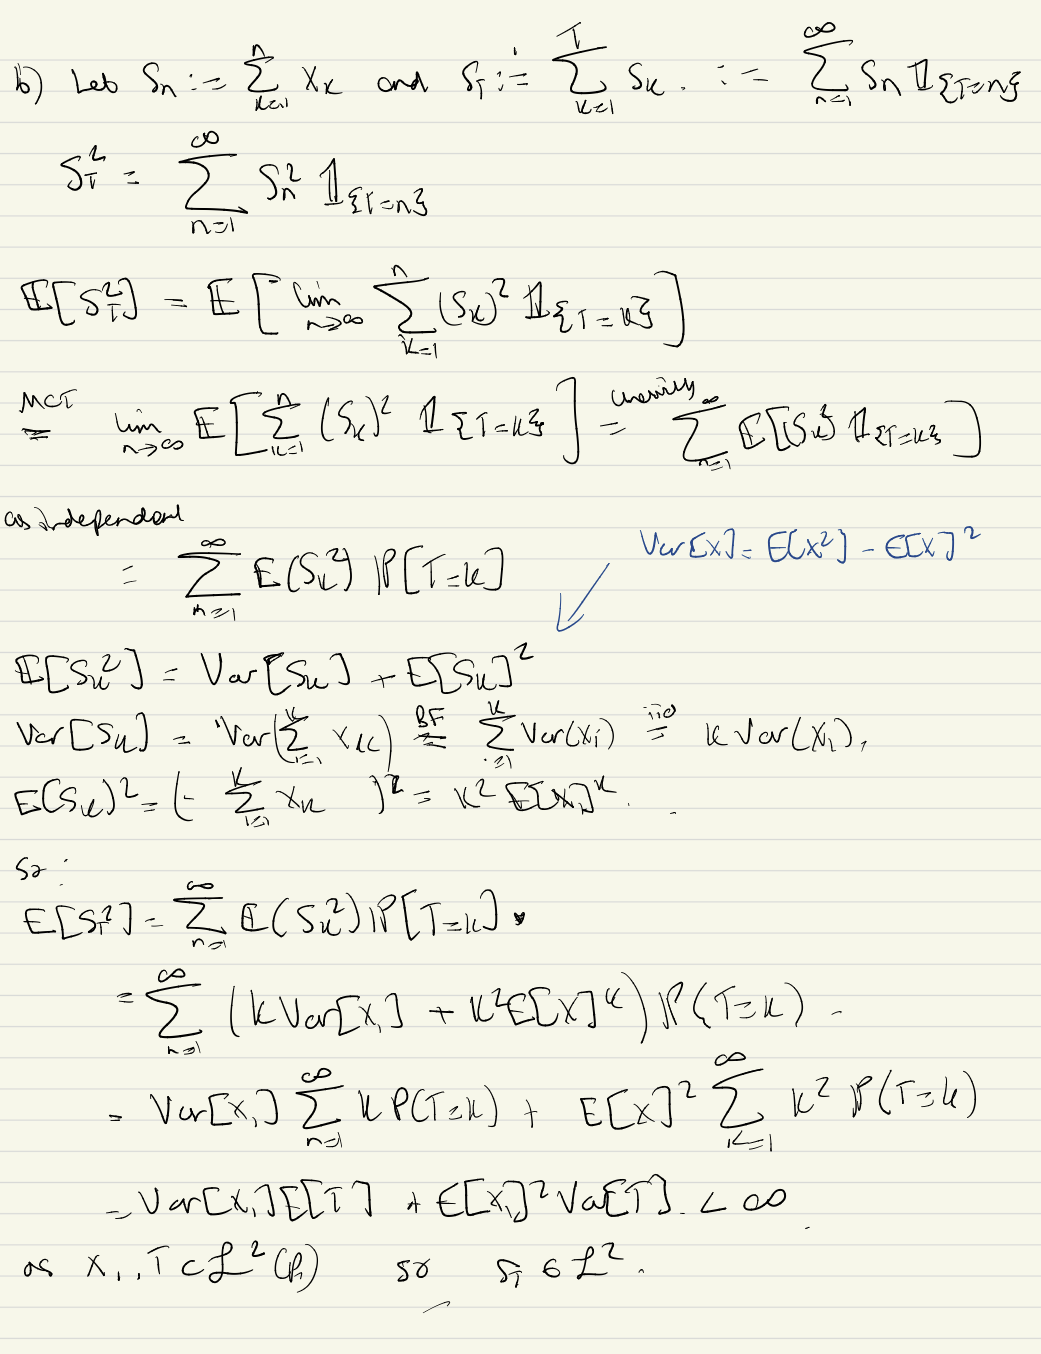 b) Let Sₙ := ∑_{k=1}^{n} X_k and S_T := ∑_{k=1}^{T} S_k. := ∑_{n=1}^{∞} Sₙ 𝟙_{{T=n}}
S_T² = ∑_{n=1}^{∞} Sₙ² 𝟙_{{T=n}}
𝔼[S_T²] = 𝔼[ lim_{n→∞} ∑_{k=1}^{n} (S_k)² 𝟙_{{T=k}} ]
MCT = lim_{n→∞} 𝔼[ ∑_{k=1}^{n} (S_k)² 𝟙_{{T=k}} ] = ∑_{n=1}^{∞} 𝔼[S_k² 𝟙_{{T=k}}]
as independent
= ∑_{n=1}^{∞} 𝔼(S_k²) ℙ[T=k]
Var[X] = E[X²] - E[X]²
𝔼[S_k²] = Var[S_k] + E[S_k]²
Var[S_k] = Var(∑_{i=1}^{k} X_k) BF = ∑_{i=1}^{k} Var(X_i) iid = k Var(X₁),
E(S_k)² = ( ∑_{i=1}^{k} X_k )² = k² E[X₁]^k.
so:
E[S_T²] = ∑_{n=1}^{∞} 𝔼(S_k²) ℙ[T=k].
= ∑_{n=1}^{∞} (k Var[X₁] + k² E[X]^k) ℙ(T=k)
= Var[X₁] ∑_{n=1}^{∞} k P(T=k) + E[X]² ∑_{k=1}^{∞} k² ℙ(T=k)
= Var[X₁] E[T] + E[X₁]² Va[T]. < ∞
as X₁, T ⊂ ℒ²(P) so S_T ∈ ℒ².